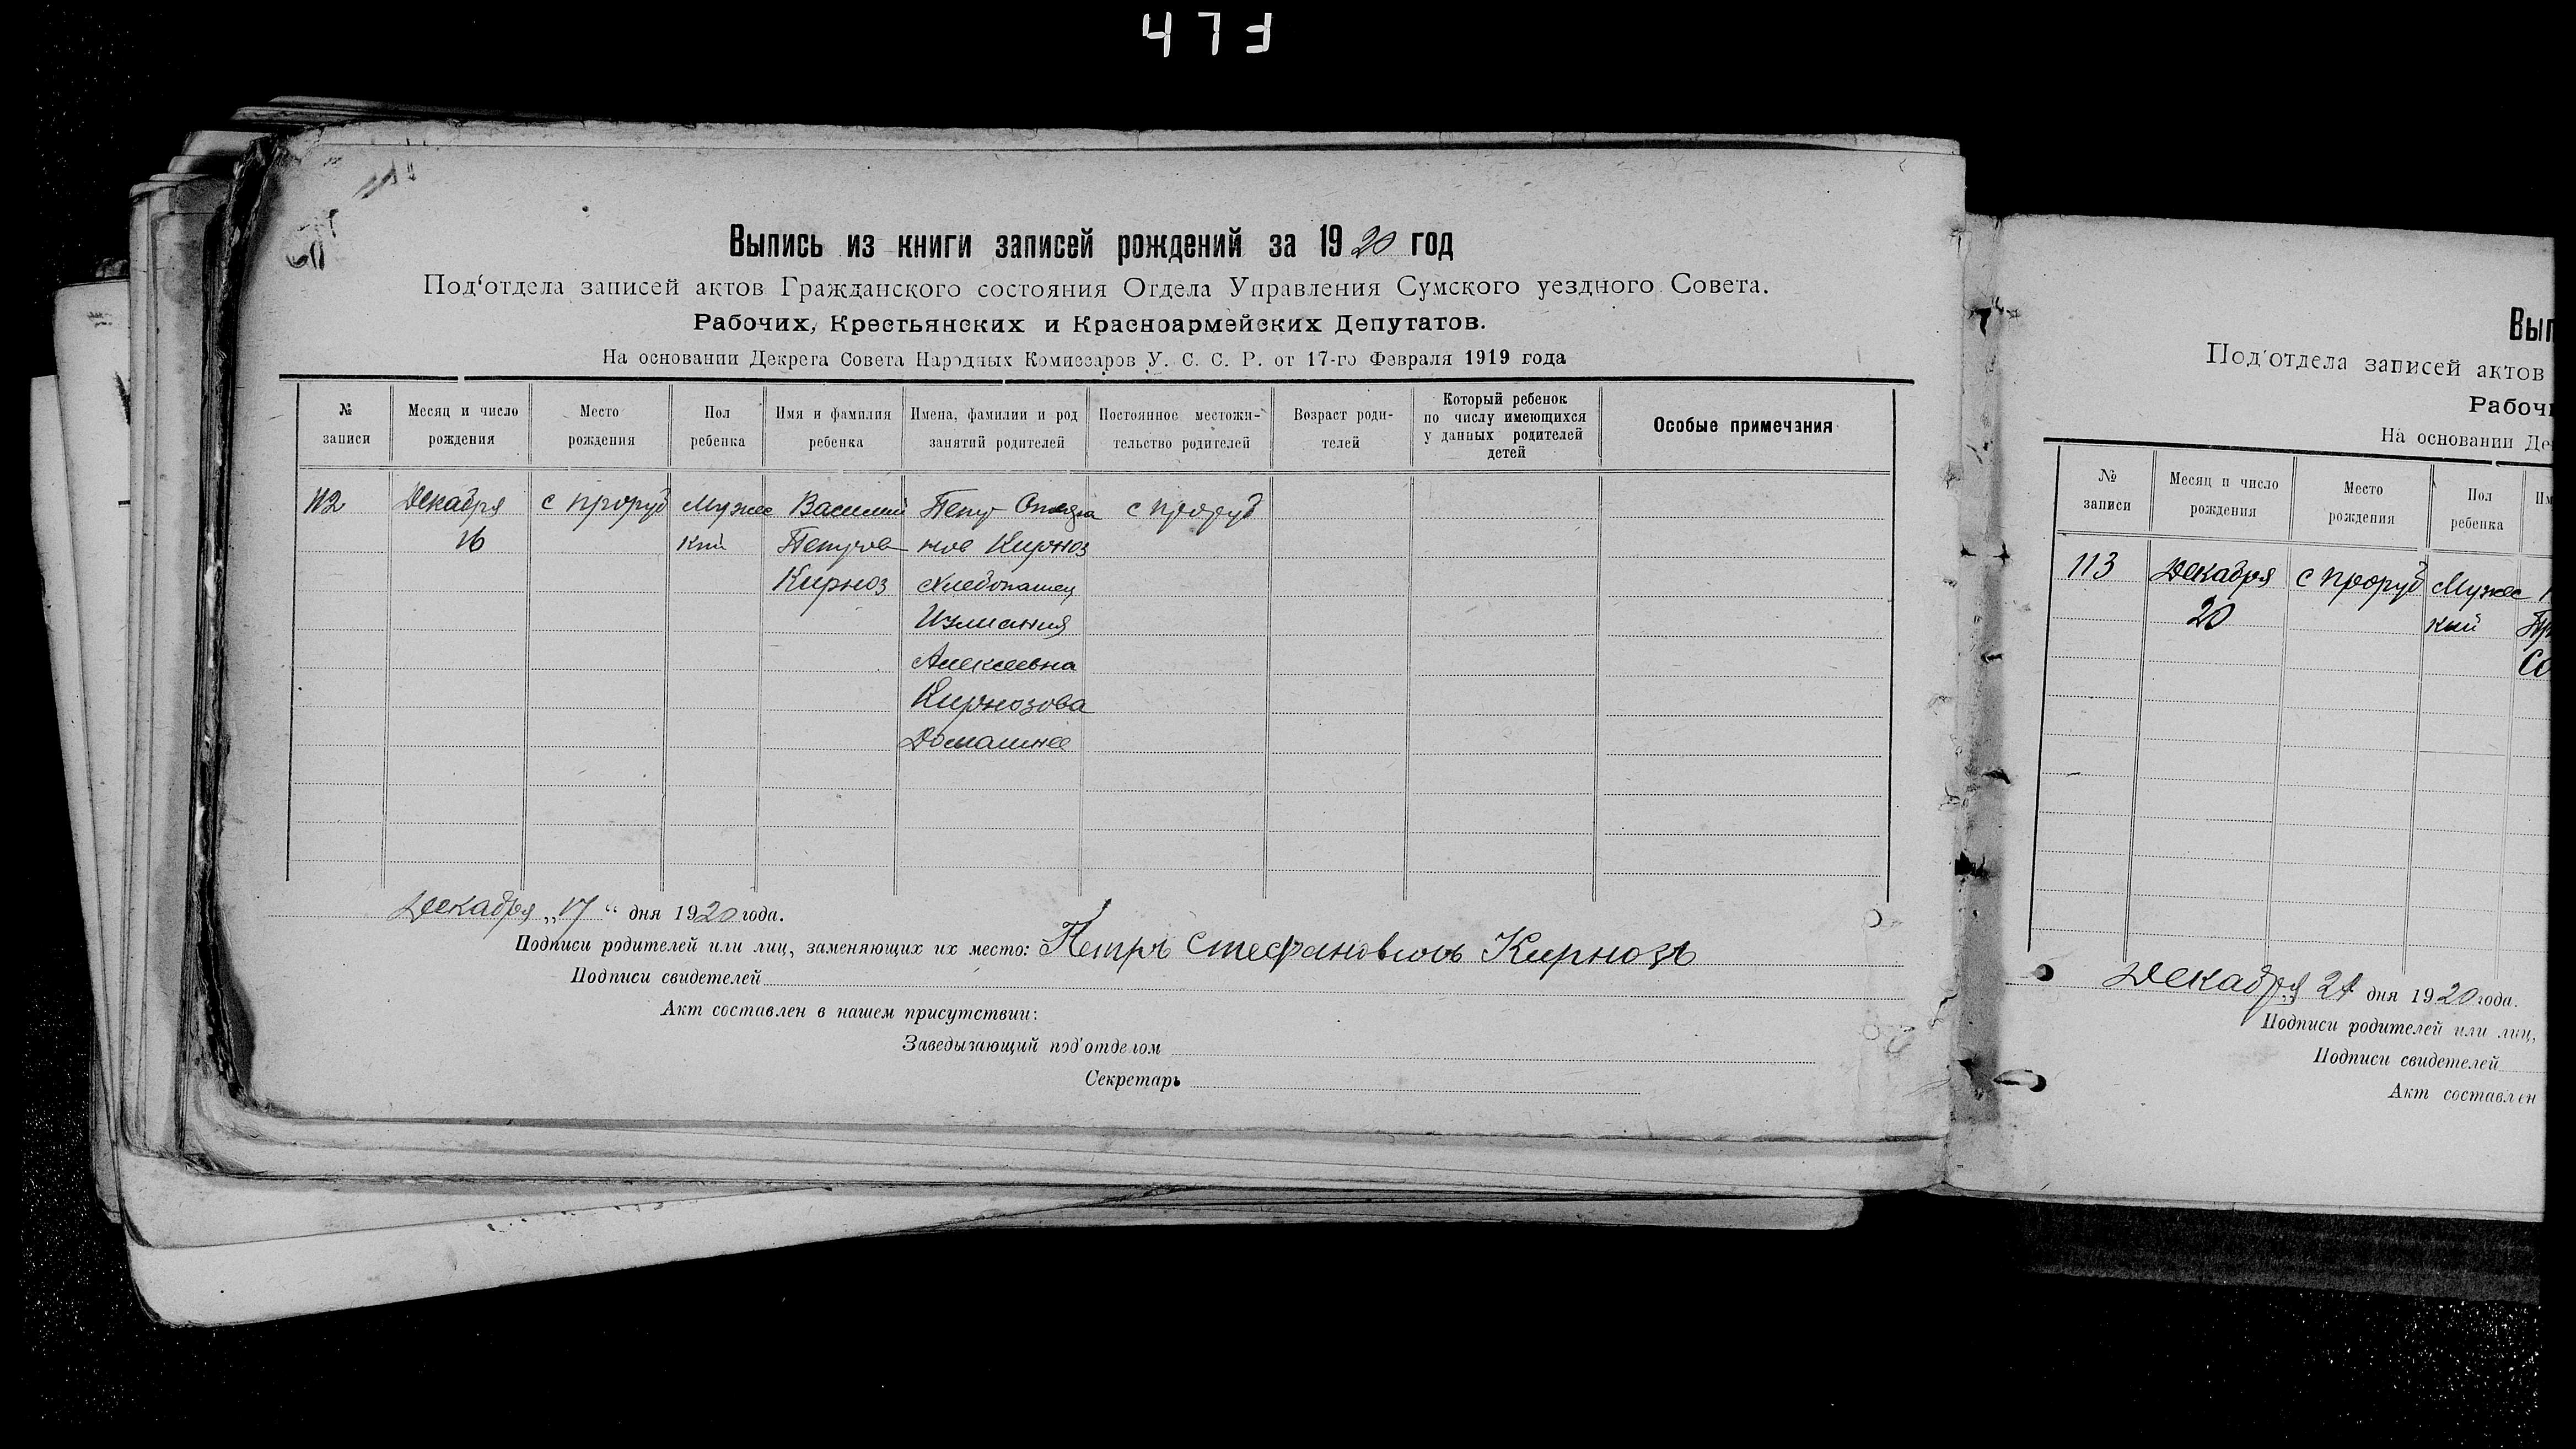 473
Выпись из книги записей рождений за 1920 год
Под‘отдела записей актов Гражданского состояния Отдела Управления Сумского уездного Совета.
Рабочих, Крестьянских и Красноармейских Депутатов.
На основании Декрета Совета Народных Комиссаров У. С. С. Р. от 17-го Февраля 1919 года
№ записи
Месяц и число рождения
Место рождения
Пол ребенка
Имя и фамилия ребенка
Имена, фамилии и род занятий родителей
Постоянное местожи-тельство родителей
Возраст роди-телей
Который ребенок по числу имеющихся у данных родителей детей
Особые примечания
112
Декабря
16
с проруб
Мужс
кий
Василий
Петров
Кирноз
Петр
нов Кирноз
Хлебопашец
Алексеевна
Кирнозова
Домашнее
с проруб
Декабря „17“ дня 1920 года.
Подписи родителей или лиц, заменяющих их место: Петръ Стефановичъ Кирнозъ
Подписи свидетелей
Акт составлен в нашем присутствии:
Заведывающий под‘отделом
Секретарь
Вып
Под‘отдела записей актов
Рабочи
На основании Де
№ записи
Месяц и число рождения
Место рождения
Пол ребенка
113
Декабря
20
с проруб
Мужс
кий
Декабря 21 дня 1920 года.
Подписи родителей или лиц,
Подписи свидетелей
Акт составлен